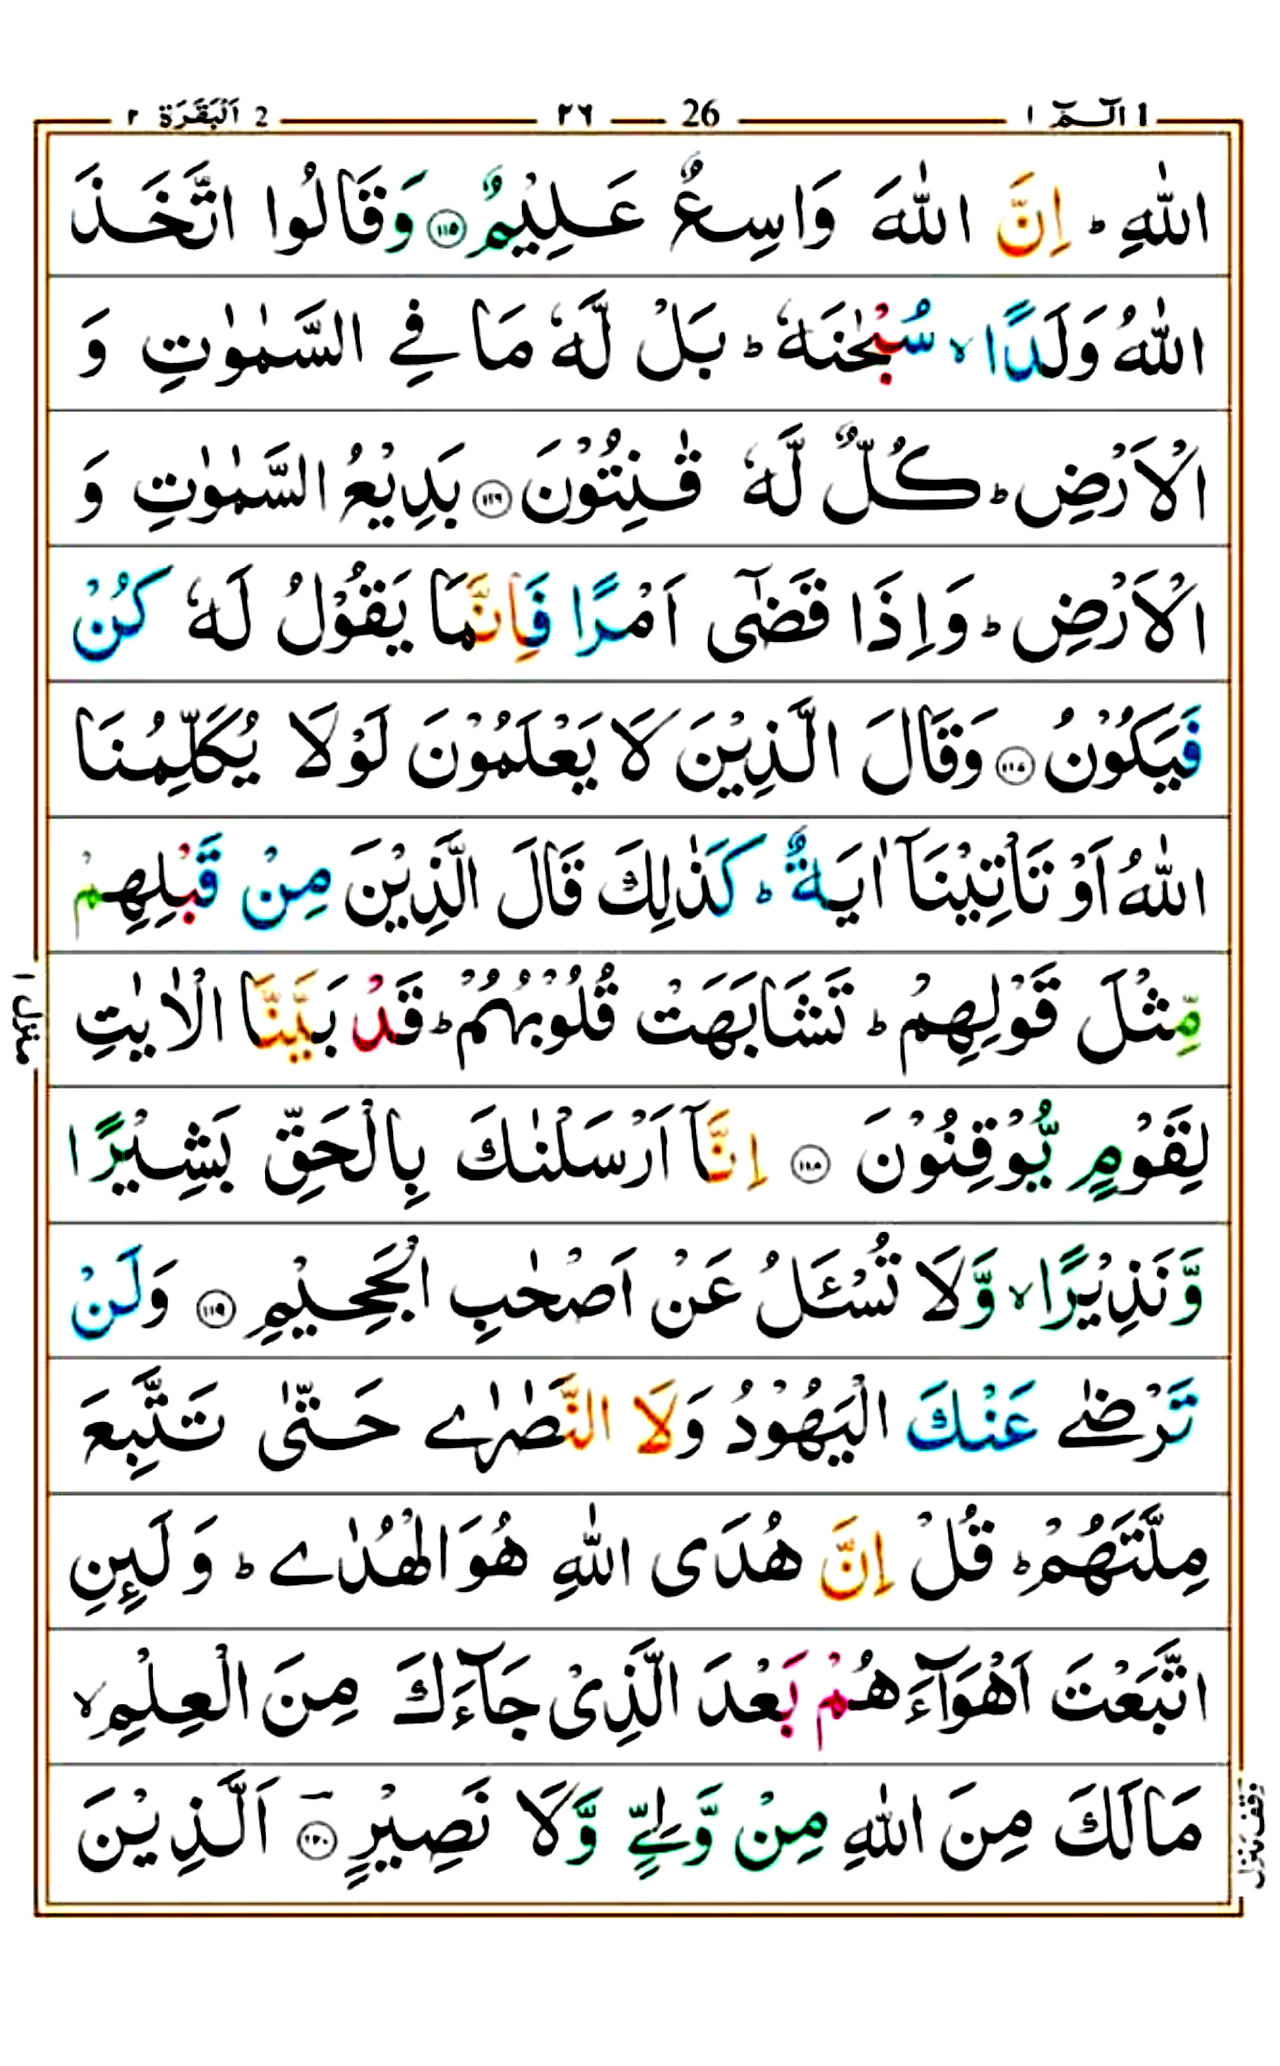 1 الٓـمّٓ ١ 26 ٢٦ 2 اَلْبَقَرَة ٢
اللّٰهِ ؕ اِنَّ اللّٰهَ وَاسِعٌ عَلِيْمٌ ۝١١٥ وَقَالُوا اتَّخَذَ
اللّٰهُ وَلَدًا ۙ سُبْحٰنَهٗ ؕ بَلْ لَّهٗ مَا فِي السَّمٰوٰتِ وَ
الْاَرْضِ ؕ كُلٌّ لَّهٗ قٰنِتُوْنَ ۝١١٦ بَدِيْعُ السَّمٰوٰتِ وَ
الْاَرْضِ ؕ وَاِذَا قَضٰٓى اَمْرًا فَاِنَّمَا يَقُوْلُ لَهٗ كُنْ
فَيَكُوْنُ ۝١١٧ وَقَالَ الَّذِيْنَ لَا يَعْلَمُوْنَ لَوْلَا يُكَلِّمُنَا
اللّٰهُ اَوْ تَاْتِيْنَآ اٰيَةٌ ؕ كَذٰلِكَ قَالَ الَّذِيْنَ مِنْ قَبْلِهِمْ
مِّثْلَ قَوْلِهِمْ ؕ تَشَابَهَتْ قُلُوْبُهُمْ ؕ قَدْ بَيَّنَّا الْاٰيٰتِ
لِقَوْمٍ يُّوْقِنُوْنَ ۝١١٨ اِنَّآ اَرْسَلْنٰكَ بِالْحَقِّ بَشِيْرًا
وَّنَذِيْرًا ۙ وَّلَا تُسْـَٔلُ عَنْ اَصْحٰبِ الْجَحِيْمِ ۝١١٩ وَلَنْ
تَرْضٰے عَنْكَ الْيَهُوْدُ وَلَا النَّصٰرٰے حَتّٰى تَتَّبِعَ
مِلَّتَهُمْ ؕ قُلْ اِنَّ هُدَى اللّٰهِ هُوَ الْهُدٰے ؕ وَلَىِٕنِ
اتَّبَعْتَ اَهْوَآءَهُمْ بَعْدَ الَّذِىْ جَآءَكَ مِنَ الْعِلْمِ ۙ
مَا لَكَ مِنَ اللّٰهِ مِنْ وَّلِيٍّ وَّلَا نَصِيْرٍ ۝١٢٠ اَلَّذِيْنَ
منزل ١
وقف منزل